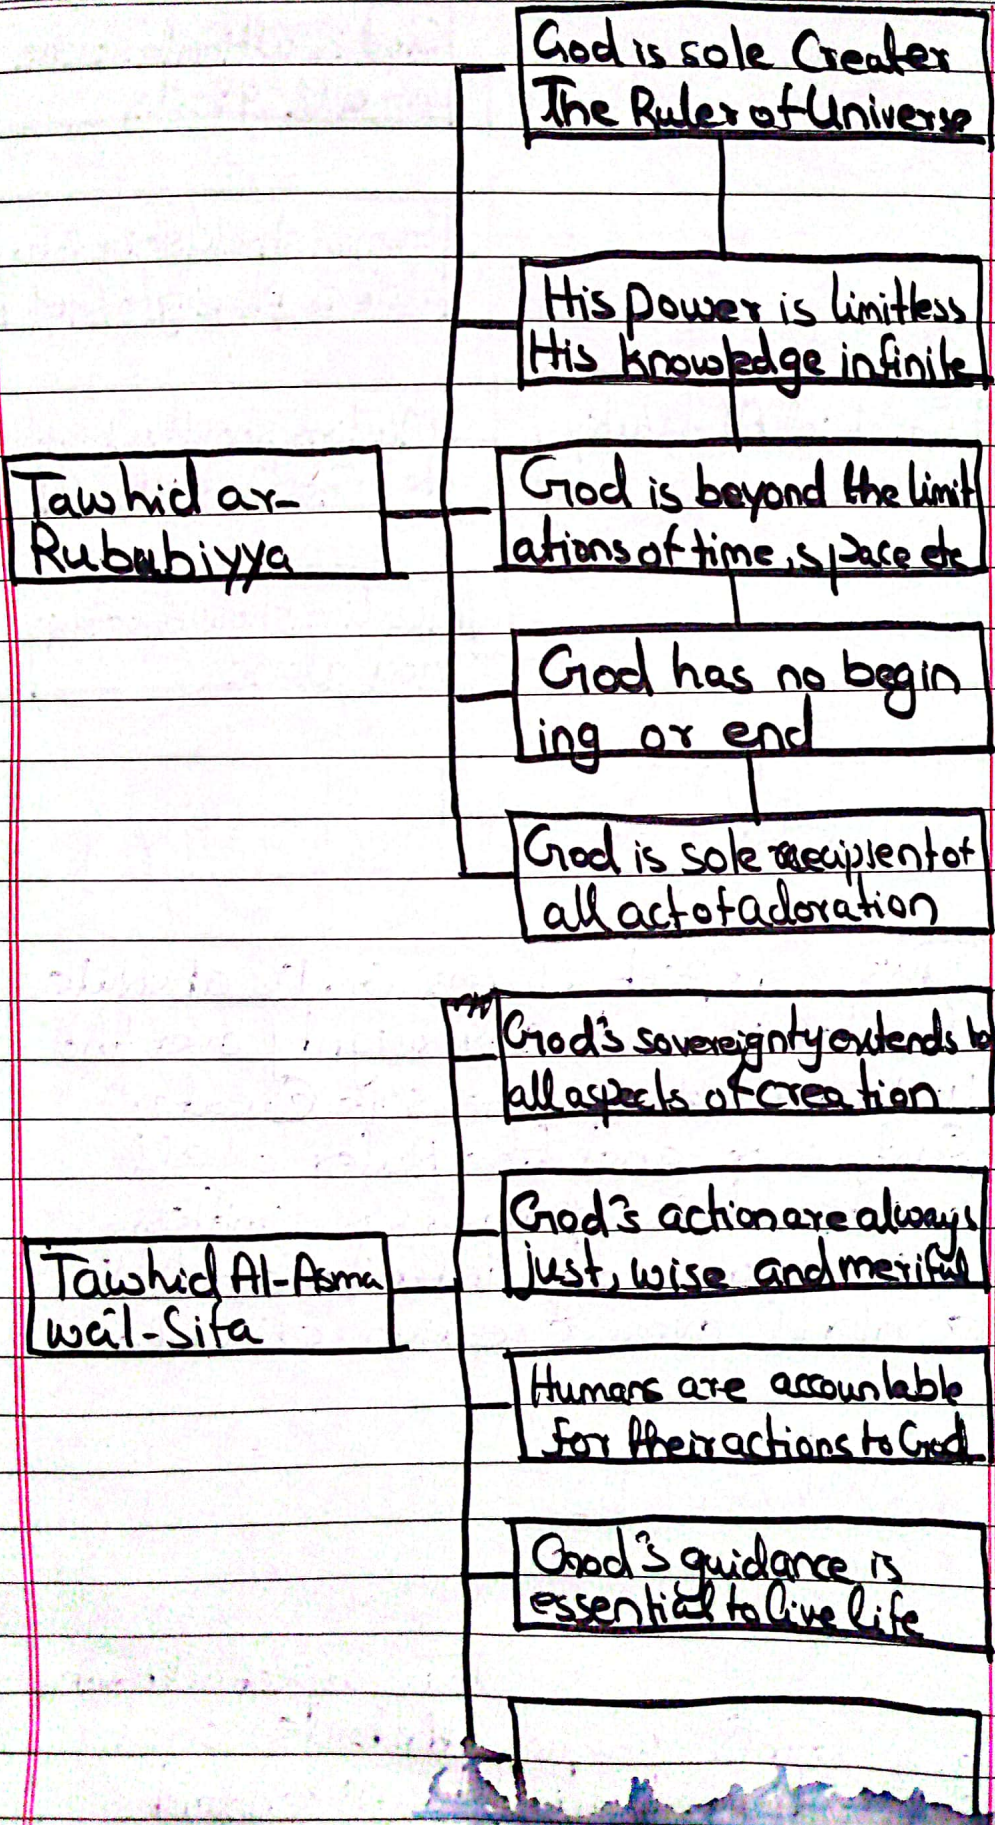 God is sole Creater
The Ruler of Universe
His power is limitless
His knowledge infinite
Tawhid ar-
Rububiyya
God is beyond the limit
ations of time, space etc
God has no begin
ing or end
God is sole recipient of
all act of adoration
God's sovereignty extends to
all aspects of creation
God's action are always
just, wise and meriful
Tawhid Al-Asma
wal-Sifa
Humans are accountable
for their actions to God
God's guidance is
essential to live life